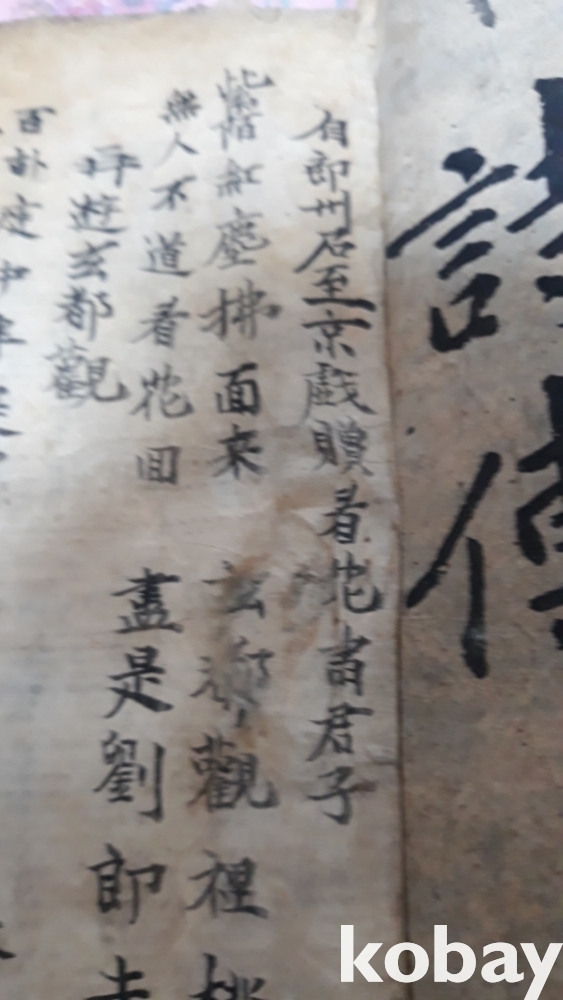 自郎州石至京戲贈看花君子
紫陌紅塵拂面來 玄都觀裡桃
無人不道看花回 盡是劉郎去
再遊玄都觀
百庭中半是
kobay